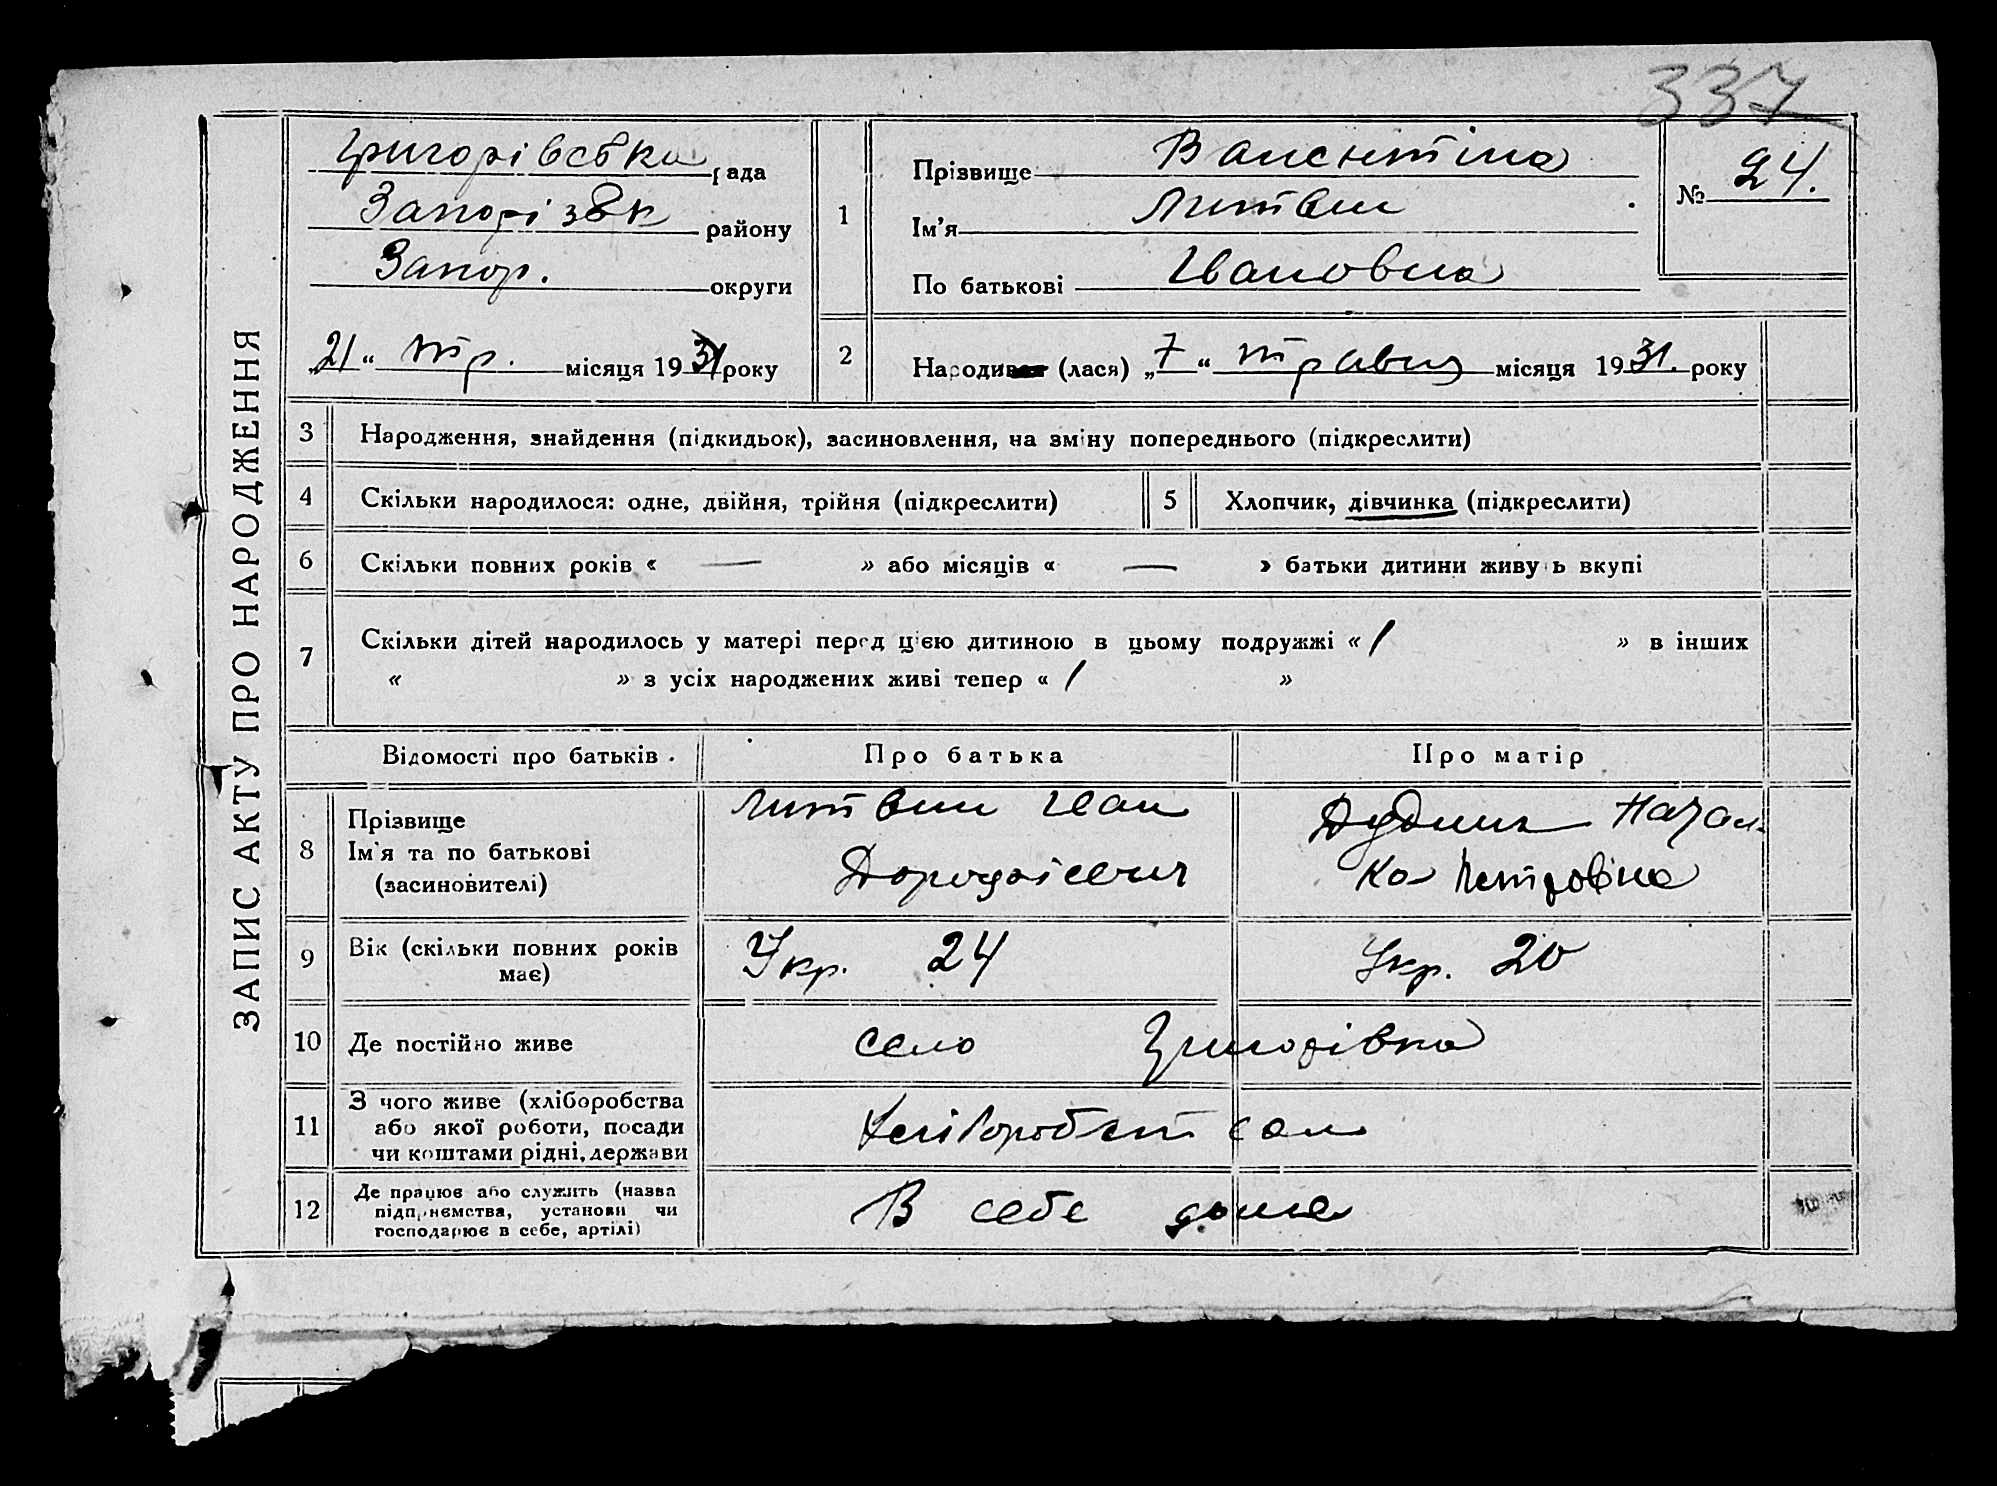 337
ЗАПИС АКТУ ПРО НАРОДЖЕННЯ
Григорівська рада
Запорізьк району
Запор. округи
„21“ тр. місяця 1931 року
1
Прізвище Валентіна
Ім'я Литвин
По батькові Івановна
№ 24.
2
Народився (лася) „7“ травня місяця 1931. року
3 Народження, знайдення (підкидьок), засиновлення, на зміну попереднього (підкреслити)
4 Скільки народилося: одне, двійня, трійня (підкреслити) 5 Хлопчик, дівчинка (підкреслити)
6 Скільки повних років « — » або місяців « — » батьки дитини живуть вкупі
7 Скільки дітей народилось у матері перед цією дитиною в цьому подружжі « 1 » в інших
« » з усіх народжених живі тепер « 1 »
Відомості про батьків. Про батька Про матір
8 Прізвище
Ім'я та по батькові
(засиновителі)
Литвин Іван
Дорофієвич
Дудник Натал-
ка Петровна
9 Вік (скільки повних років
має)
Укр. 24 Укр. 20
10 Де постійно живе село Григорівка
11 З чого живе (хліборобства
або якої роботи, посади
чи коштами рідні, держави
Хліборобством
12 Де працює або служить (назва
підприємства, установи чи
господарює в себе, артілі)
В себе дома